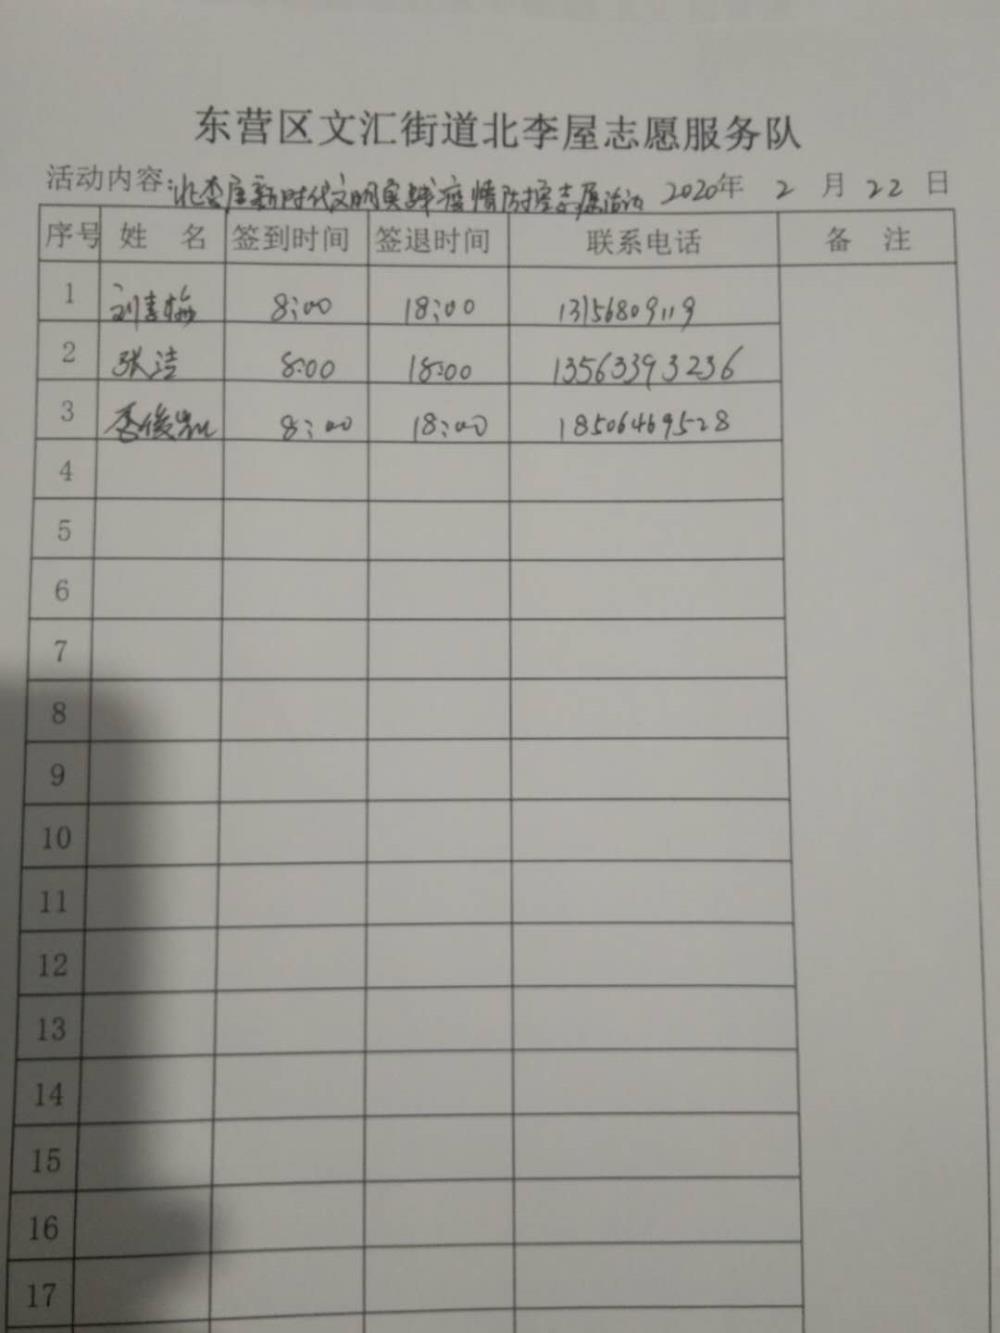 东营区文汇街道北李屋志愿服务队
活动内容:北李屋新时代文明实践疫情防控志愿活动 2020年 2 月 22 日
序号 姓 名 签到时间 签退时间 联系电话 备 注
1 刘 梅 8:00 18:00 13156809119
2 张洁 8:00 18:00 13563393236
3 李俊 8:00 18:00 18506469528
4
5
6
7
8
9
10
11
12
13
14
15
16
17